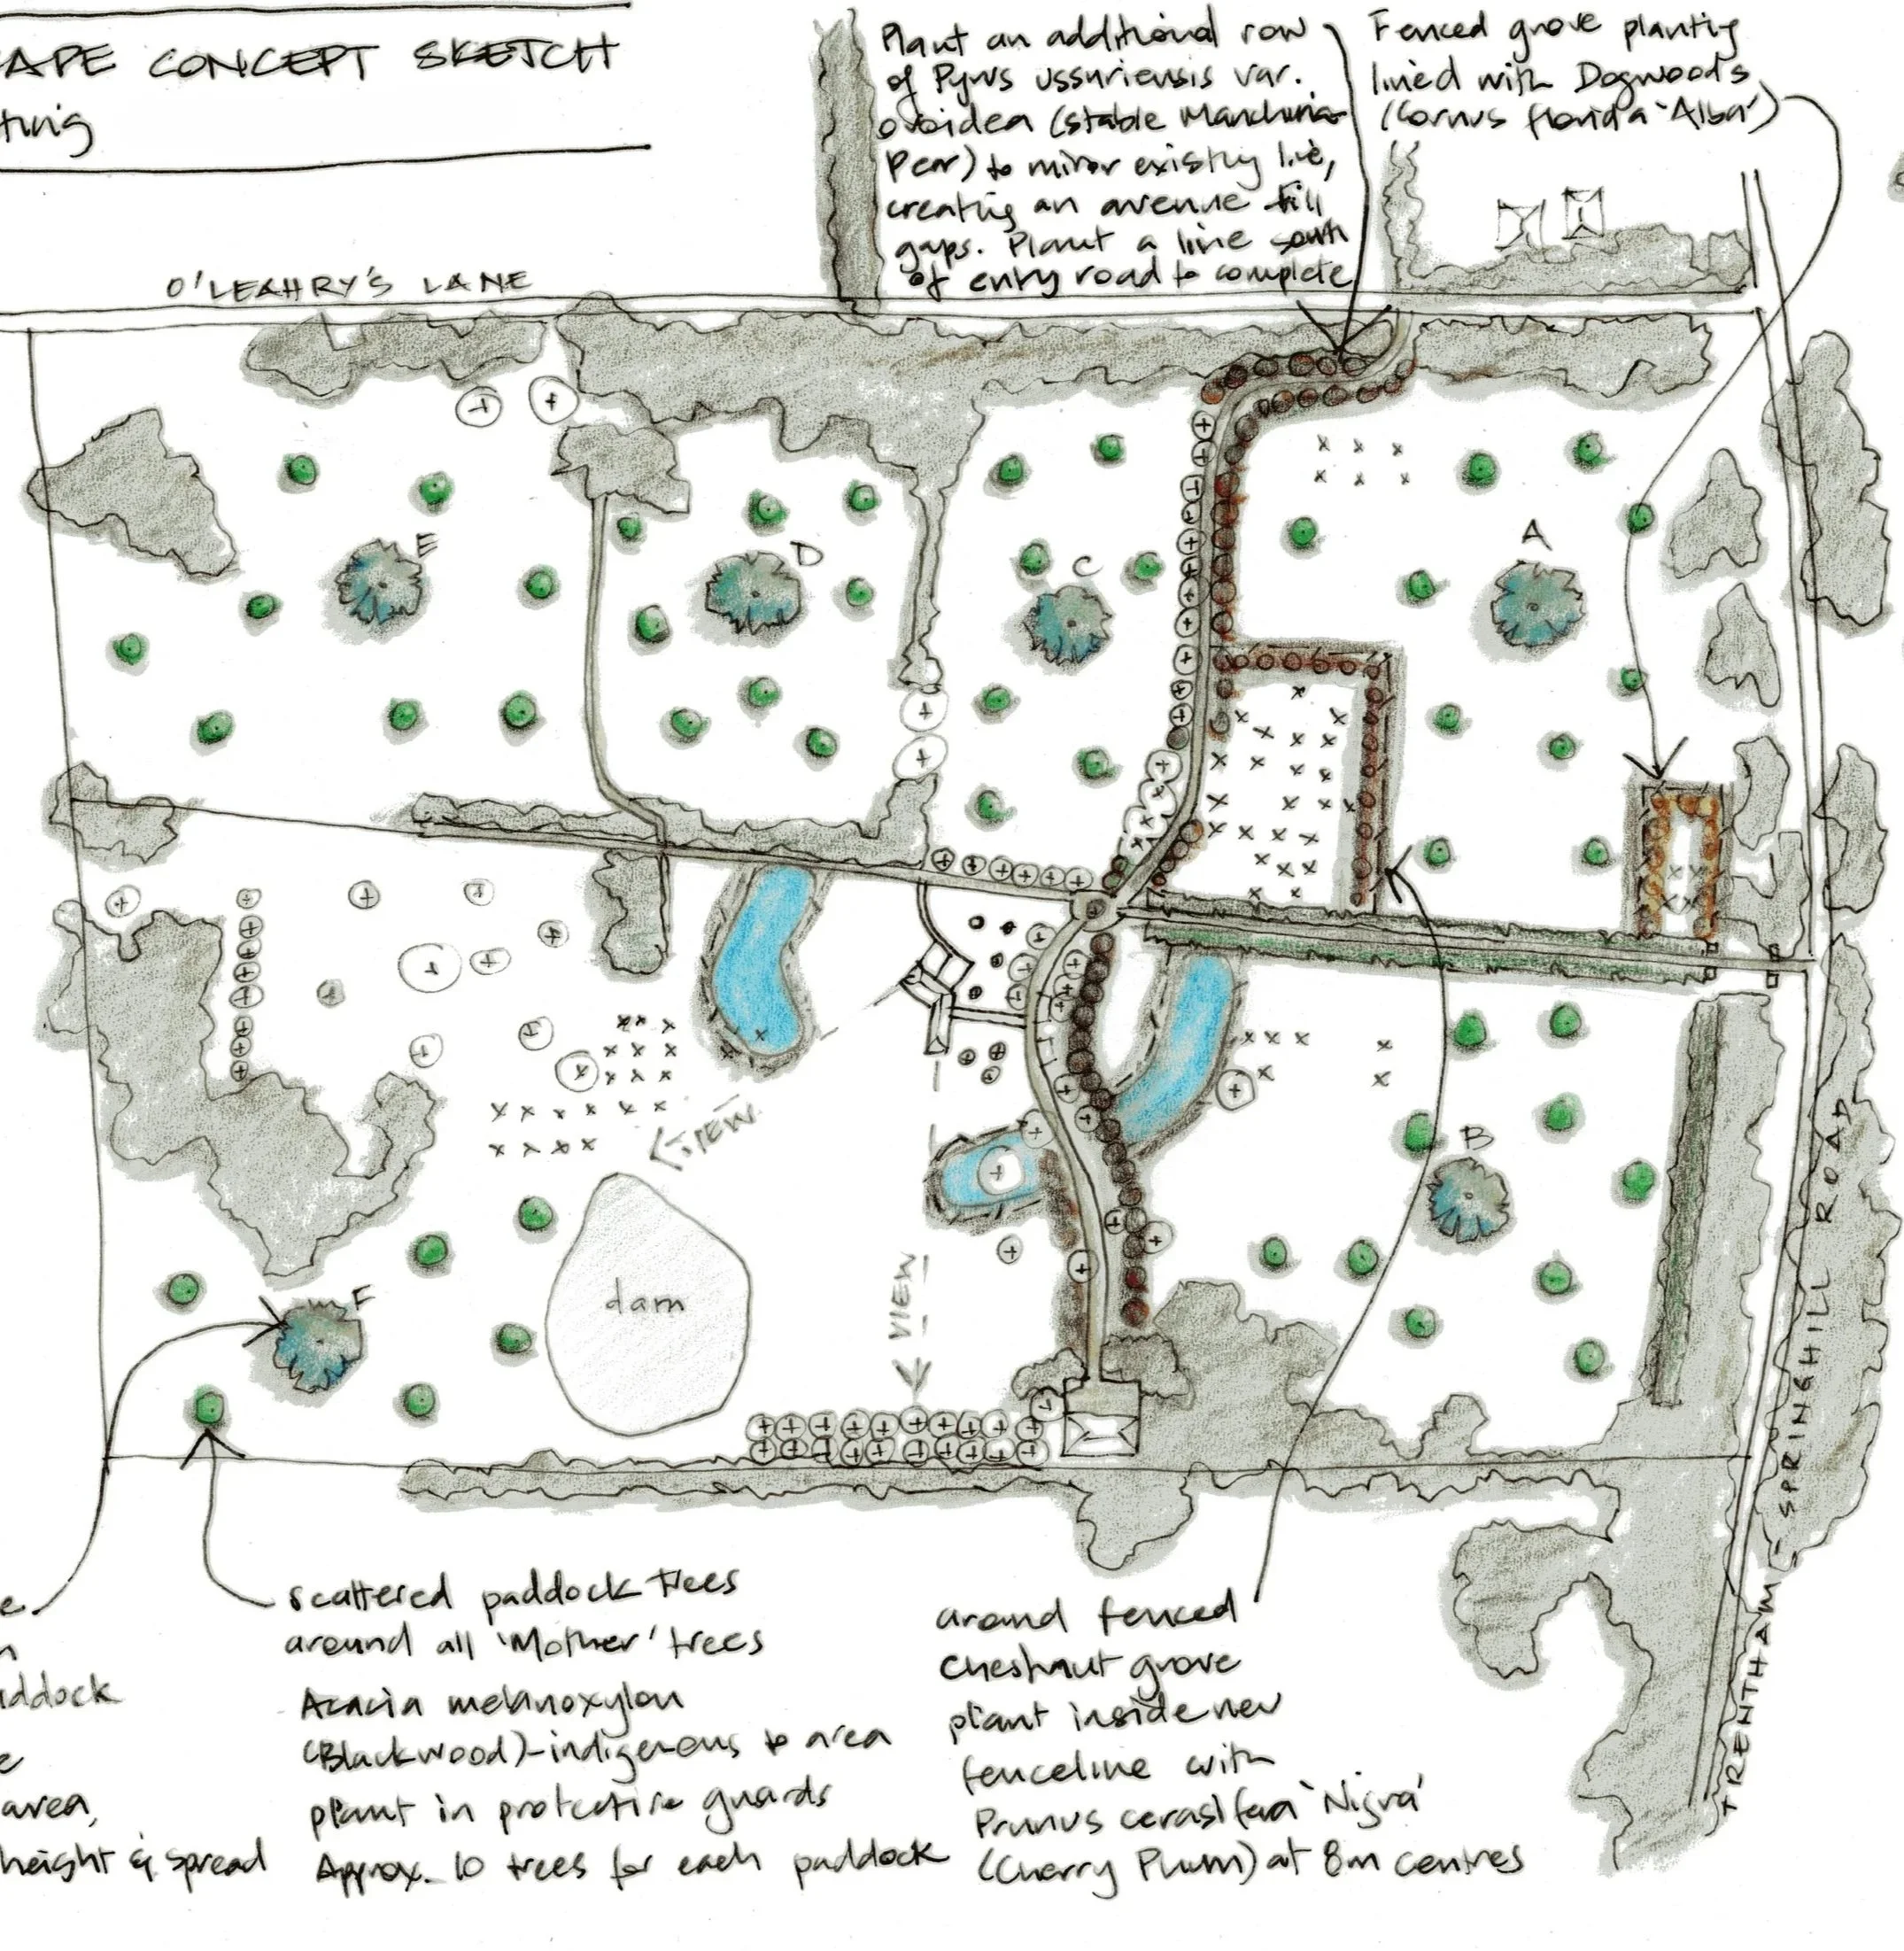 APE CONCEPT SKETCH
ting
Plant an additional row
of Pyrus ussuriensis var.
ovoidea (stable Manchurian
Pear) to mirror existing line,
creating an avenue fill
gaps. Plant a line south
of entry road to complete
Fenced grove planting
lined with Dogwoods
(Cornus florida 'Alba')
O'LEAHRY'S LANE
E
D
C
A
B
VIEW
dam
VIEW
F
TRENTHAM - SPRINGHILL ROAD
e
n
addock
e
area,
height & spread
scattered paddock trees
around all 'Mother' trees
Acacia melanoxylon
(Blackwood)-indigenous to area
plant in protective guards
Approx. 10 trees for each paddock
around fenced
chestnut grove
plant inside new
fenceline with
Prunus cerasifera 'Nigra'
(Cherry Plum) at 8m centres